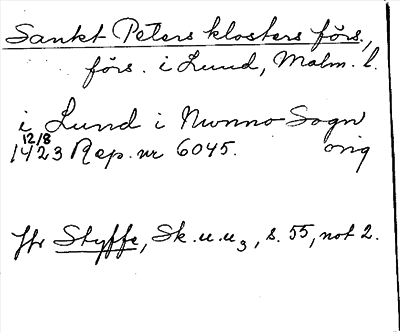 Sankt Peters klosters förs.,
förs. i Lund, Malm. l.
i Lund i Nunno Sogn
12/8
1423 Rep. nr 6045. orig
Jfr Styffe, Sk. u. u3, s. 55, not 2.